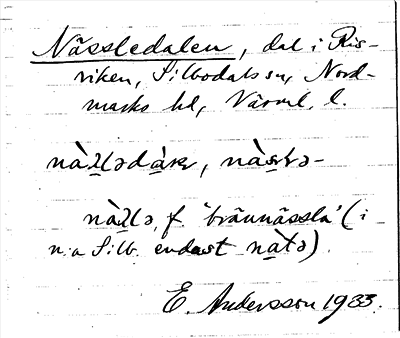 Nässledalen, dal i Ris-
riken, Silbodals sn, Nord-
marks hd, Värml. l.
nàḷḷədàrː, nàstə-
nàḷḷə f. 'brännässla' (i
n:a Silb. endast nàtə)
E. Andersson 1933.